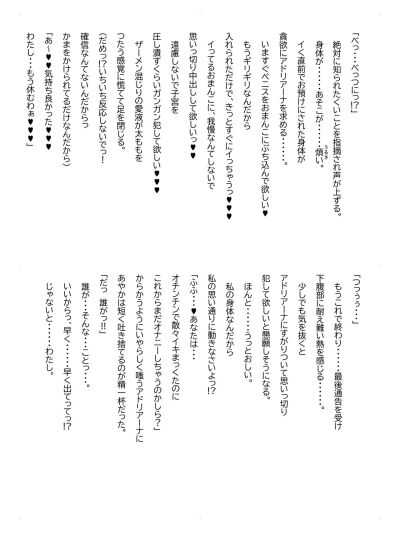 「べっ…べっつにっ!?」
絶対に知られたくいことを指摘され声が上ずる。
身体が……あそこが……煩い。
イく直前でお預けにされた身体が
貪欲にアドリアーナを求める……。
いますぐペニスをおまんこにぶち込んで欲しい♥
もうギリギリなんだから
入れられただけで、きっとすぐにイっちゃうっ♥♥
イってるおまんこに、我慢なんてしないで
思いっ切り中出しして欲しいっ♥♥
遠慮しないで子宮を
圧し潰すくらいガンガン犯して欲しい♥♥♥
ザーメン混じりの愛液が太ももを
つたう感覚に慌てて足を閉じる。
(だめっ?いちいち反応しないでっ!
確信なんてないんだからっ
かまをかけられてるだけなんだから)
「あ〜♥♥気持ち良かった♥♥♥
わたし…もう休むわぁ♥♥♥」
「つっぅぅ……」
もうこれで終わり……最後通告を受け
下腹部に耐え難い熱を感じる……。
少しでも気を抜くと
アドリアーナにすがりついて思いっ切り
犯して欲しいと懇願しそうになる。
ほんと……うっとおしい。
私の身体なんだから
私の思い通りに動きなさいよっ!?
「ふふ…♥あなたは…
オチンチンで散々イキまったくのに
これからまだオナニーしちゃうのかしら?」
からかうようにいやらしく嗤うアドリアーナに
あやかは短く吐き捨てるのが精一杯だった。
「だっ 誰がっ!!」
誰が…そんな…ことっ…。
いいからっ、早く……早く出てってっ!?
じゃないと……わたし。